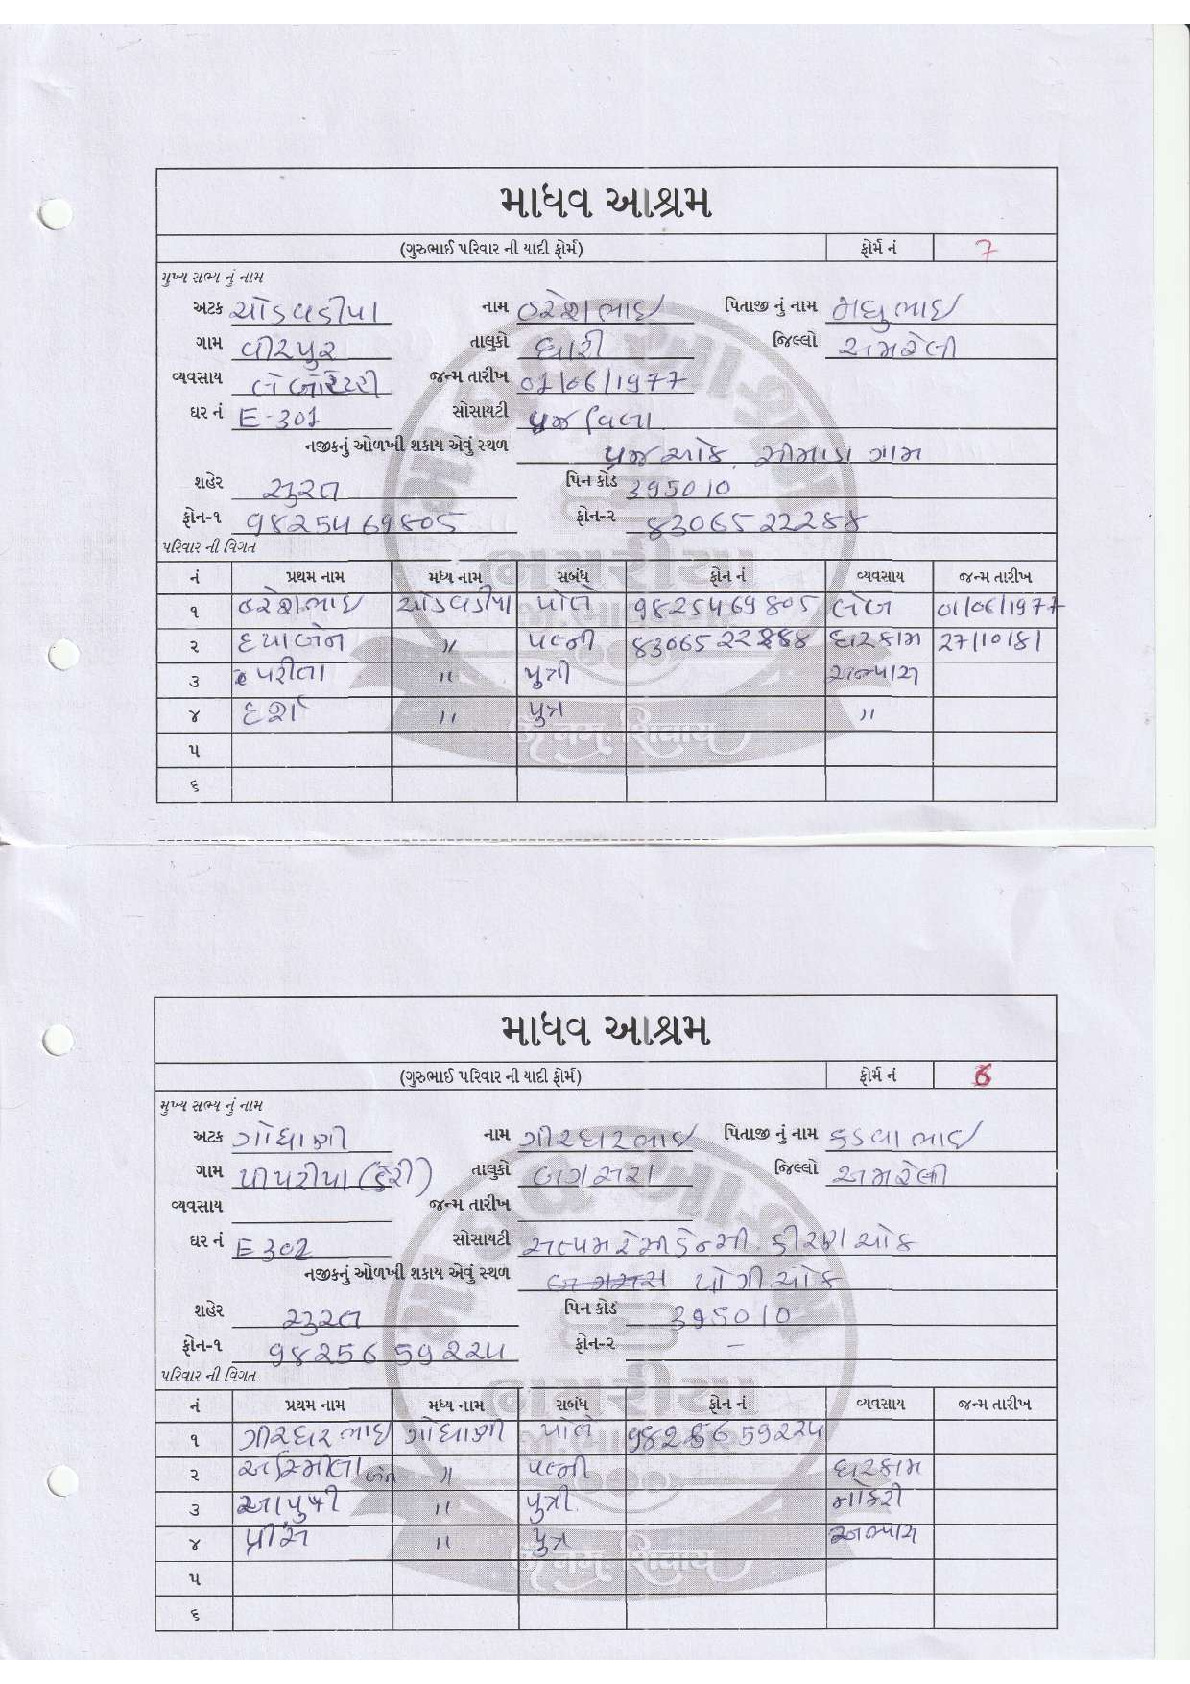 માધવ આશ્રમ
(ગુરુભાઈ પરિવાર ની યાદી ફોર્મ) ફોર્મ નં 7
મુખ્ય સભ્ય નું નામ
અટક ચોડવડીયા નામ હરેશભાઇ પિતાજી નું નામ મધુભાઇ
ગામ વીરપુર તાલુકો ધારી જિલ્લો અમરેલી
વ્યવસાય લેબોરેટરી જન્મ તારીખ 01/06/1977
ઘર નં E-301 સોસાયટી વ્રજ વિલા
નજીકનું ઓળખી શકાય એવું સ્થળ વ્રજ ચોક. સીમાડા ગામ
શહેર સુરત પિન કોડ 395010
ફોન-૧ ૧૬૨૫૪૬૯૮૦૫ ફોન-૨
પરિવાર ની વિગત
નં પ્રથમ નામ મધ્ય નામ સબંધ ફોન નં વ્યવસાય જન્મ તારીખ
૧ હરેશભાઇ ચોડવડીયા પોતે 9825469805 લેબ 01/06/1977
૨ દયાબેન " પત્ની ઘરકામ 27/10/81
૩ પરીતા " પુત્રી અભ્યાસ
૪ દર્શ " પુત્ર "
૫
૬
માધવ આશ્રમ
(ગુરુભાઈ પરિવાર ની યાદી ફોર્મ) ફોર્મ નં 6
મુખ્ય સભ્ય નું નામ
અટક ગોધાણી નામ ગીરધરભાઇ પિતાજી નું નામ કડવાભાઇ
ગામ પીપરીયા તાલુકો બગસરા જિલ્લો અમરેલી
વ્યવસાય જન્મ તારીખ
ઘર નં E 302 સોસાયટી કીરણ ચોક
નજીકનું ઓળખી શકાય એવું સ્થળ યોગીચોક
શહેર સુરત પિન કોડ 395010
ફોન-૧ 9825659224 ફોન-૨ –
પરિવાર ની વિગત
નં પ્રથમ નામ મધ્ય નામ સબંધ ફોન નં વ્યવસાય જન્મ તારીખ
૧ ગીરધરભાઇ ગોધાણી પોતે 9825659224
૨ અસ્મિતાબેન " પત્ની ઘરકામ
૩ " પુત્રી નોકરી
૪ પ્રીંસ " પુત્ર અભ્યાસ
૫
૬